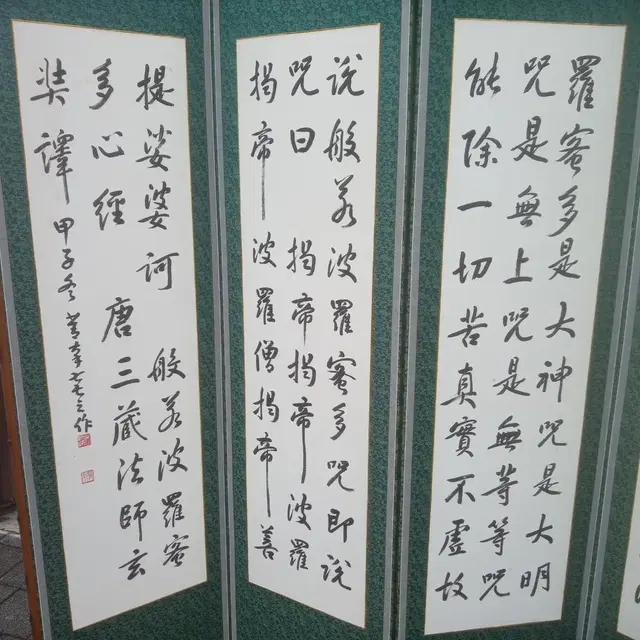 羅蜜多是大神呪是大明
呪是無上呪是無等等呪
能除一切苦真實不虛故
說般若波羅蜜多呪即說
呪曰 揭帝揭帝 波羅
揭帝 波羅僧揭帝 菩
提娑婆訶 般若波羅蜜
多心經 唐三藏法師玄
奘譯 甲子冬 作